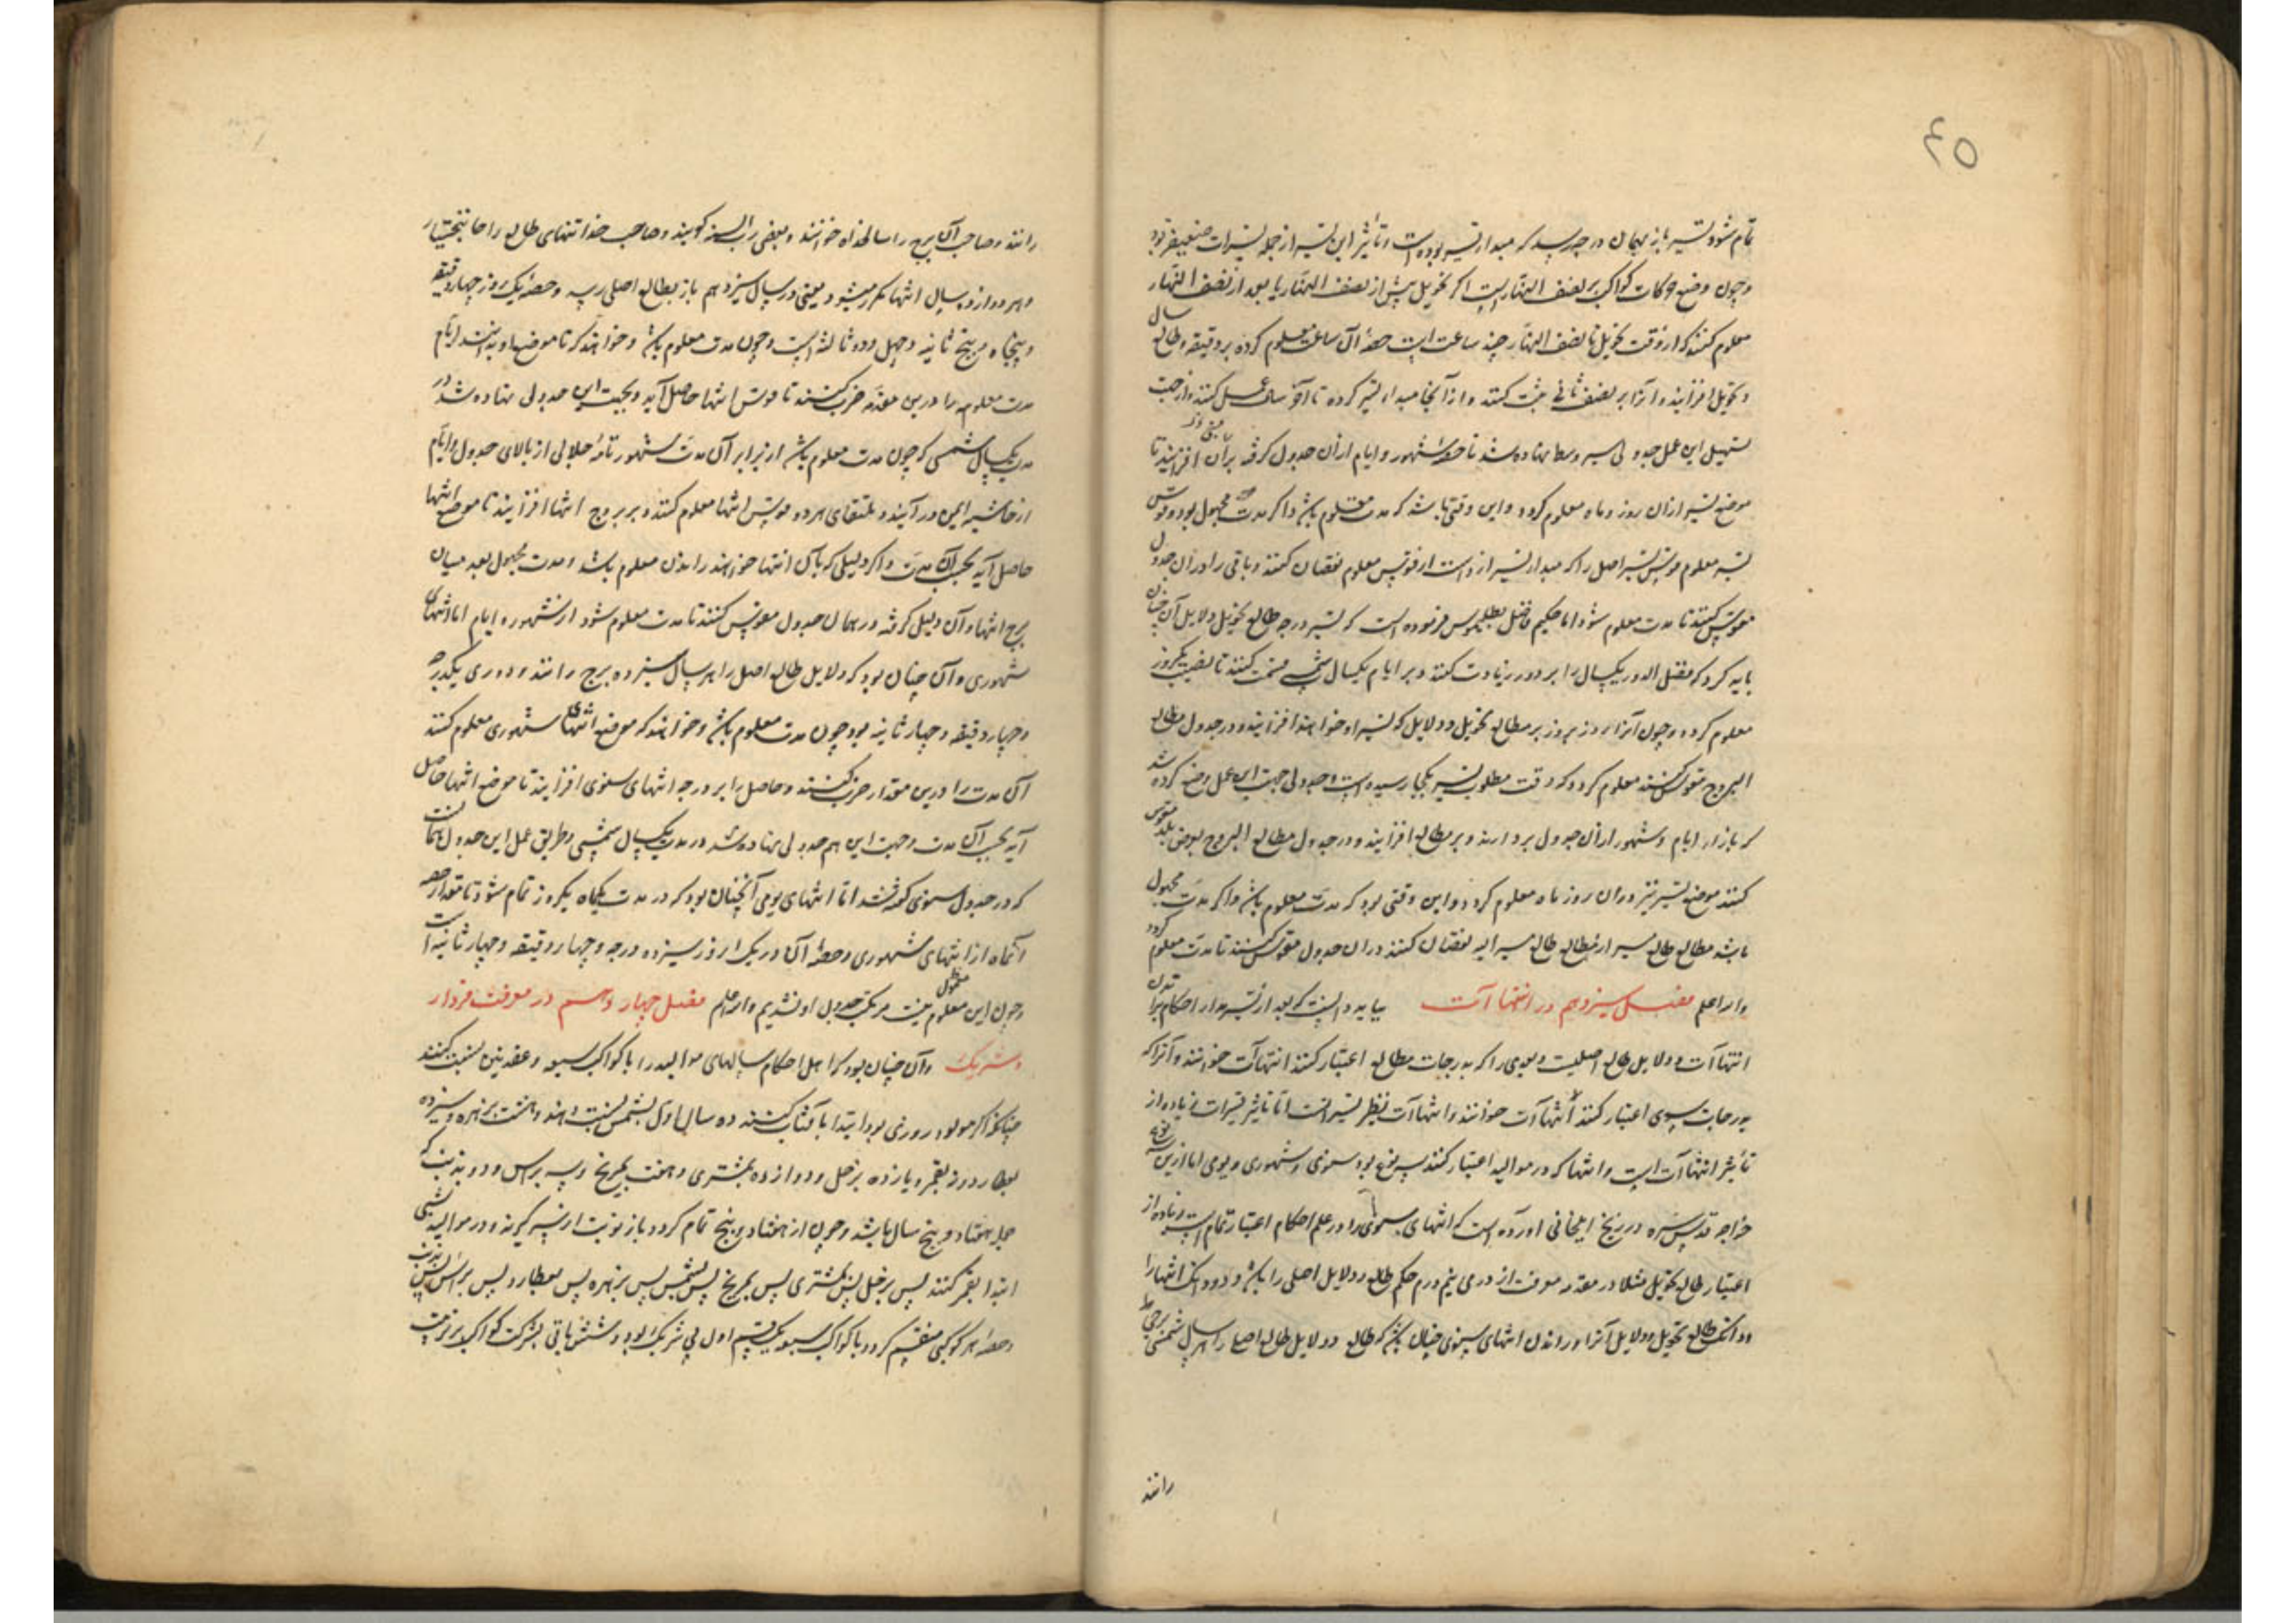 ٤٥
تمام شود و تسیر باز بهمان درجه رسد که مبداء تسیر بوده است و تأثیر این تسیر از جمله تسیرات ضعیفتر بود
و چون وضع حرکات کواکب بر نصف النهار است اگر تحویل پیش از نصف النهار یا بعد از نصف النهار
معلوم کنند که از وقت تحویل تا نصف النهار چند ساعت است حصهٔ آن ساعت معلوم کرده بر دقیقه و طالع سال
و تحویل افزایند و آنرا بر نصف ثانی ثبت کنند و از آنجا مبداء تسیر کرده تا آخر سال عمل کنند و از جهت
تسهیل این عمل جدولی سیر وسط نهاده شد تا حصهٔ شهور و ایام از آن جدول گرفته بر آن افزایند تا
موضع تسیر از آن روز و ماه معلوم گردد و این وقتی باشد که مدت معلوم باشد و اگر مدت مجهول بود و قوس
تسیر معلوم قوس تسیر اصل را که مبداء تسیر ازوست از قوس معلوم نقصان کنند و باقی را در آن جدول
مقوس کنند تا مدت معلوم شود اما حکیم فاضل بطلمیوس فرموده است که تسیر درجه طالع تحویل و دلایل آن چنان
باید کرد که فضل الدور یکسال را بر دور زیادت کنند و بر ایام یکسال شمسی قسمت کنند تا نصیب یکروز
معلوم گردد و چون آنرا روز بروز بر مطالع تحویل و دلایل که تسیر او خواهند افزایند و در جدول مطالع
البروج مقوس کنند معلوم گردد که وقت مطلوب تسیر بکجا رسیده است و جدولی جهت این عمل وضع کرده شد
که بازاء ایام و شهور از آن جدول بردارند و بر مطالع افزایند و در جدول مطالع البروج بعرض بلد مقوس
کنند موضع تسیر نیز در آن روز ماه معلوم گردد و این وقتی بود که مدت معلوم باشد و اگر مدت مجهول
باشد مطالع طالع مسیر از مطالع طالع مسیر الیه نقصان کنند در آن جدول مقوس کنند تا مدت معلوم گردد
و الله اعلم فصل سیزدهم در انتهاآت بباید دانست که بعد از تسیر مدار احکام بر
انتهاآت و دلایل طالع اصلیست و بعدی را که بدرجات مطالع اعتبار کنند انتهاآت خوانند و آنرا که
بدرجات سوی اعتبار کنند انتهاآت خوانند و انتهاآت نظیر تسیراتست اما تاثیر تسیرات زیاده از
تأثیر انتهاآت است و انتها که در موالید اعتبار کنند سه نوع بود سنوی و شهوری و یومی اما ازین
خواجه قدس سره در زیج ایلخانی آورده است که انتهای سنوی را در علم احکام اعتبار تمام است و زیاده از
اعتبار طالع تحویل مثلا در مقدمه معرفت از درمی نیم درم حکم طالع و دلایل اصلی را باشد و دو دانک انتها را
و دانک طالع تحویل و دلایل آنرا و راندن انتهای سنوی چنان باشد که طالع و دلایل طالع اصلی را هر سال شمسی برجی
رانند
رانند و صاحب آن برج را سالخداه خوانند و بعضی رب السنه گویند و صاحب حد انتهای طالع را جانبختیار
و هر دوازده سال انتها مکرر میشود یعنی در سال سیزدهم باز بطالع اصلی رسد و حصه یک روز چهار دقیقه
و پنجاه و پنج ثانیه و چهل و دو ثالثه است و چون مدت معلوم باشد و خواهند که تا موضع او بدانند ایام
مدت معلوم را درین مقدمه ضرب کنند تا قوس انتها حاصل آید و بجهت این جدولی نهاده شد در
مدت یکسال شمسی که چون مدت معلوم باشد از برابر آن مدت شهور تامهٔ جلالی از بالای جدول و ایام
از حاشیه ایمن در آیند و ملتقای هر دو قوس انتها معلوم کنند و بر برج انتها افزایند تا موضع انتها
حاصل آید بحسب آن مدت و اگر دلیلی که با آن انتها خواهند راندن معلوم باشد و مدت مجهول بعد میان
برج انتها و آن دلیل گرفته در همان جدول مقوس کنند تا مدت معلوم شود از شهور و ایام اما انتهای
شهوری و آن چنان بود که دلایل طالع اصل را هر سال سیزده برج رانند و دوری یکدرجه
و چهار دقیقه و چهار ثانیه بود چون مدت معلوم باشد و خواهند که موضع انتهای شهوری معلوم کنند
آن مدت را درین مقدار ضرب کنند و حاصل را بر درجه انتهای سنوی افزایند تا موضع انتها حاصل
آید بحسب آن مدت و جهت این هم جدولی نهاده شد در مدت یکسال شمسی و طریق عمل این جدول همانست
که در جدول سنوی گفته شد اما انتهای یومی آنچنان بود که در مدت یکماه یکروز تمام شود تا مقدار حصه
آنماه از انتهای شهوری و حصهٔ آن در یک روز سیزده درجه و چهار دقیقه و چهار ثانیه است
و چون این معلوم نیست مرتکب جدول او نشدیم و الله اعلم فصل چهاردهم در معرفت فردار
و شریک و آن چنان بود که اهل احکام سالهای موالید را با کواکب سبعه و عقدتین نسبت کنند
چنانکه اگر مولود روزی بود ابتدا بآفتاب کنند ده سال اول بشمس نسبت دهند و هشت بزهره و سیزده
بعطارد و نه بقمر و یازده بزحل و دوازده بمشتری و هفت بمریخ و سه براس و دو بذنب که
جمله هفتاد و پنج سال باشد و چون از هفتاد و پنج تمام گردد باز نوبت از سر گیرند و در موالید شبی
ابتدا بقمر کنند پس بزحل پس بمشتری پس بمریخ پس بشمس پس بزهره پس بعطارد پس براس پس بذنب
و حصهٔ هر کوکبی منقسم گردد با کواکب سبعه یک قسم اول بی شریک بود و شش باقی بشرکت کواکب بر ترتیب